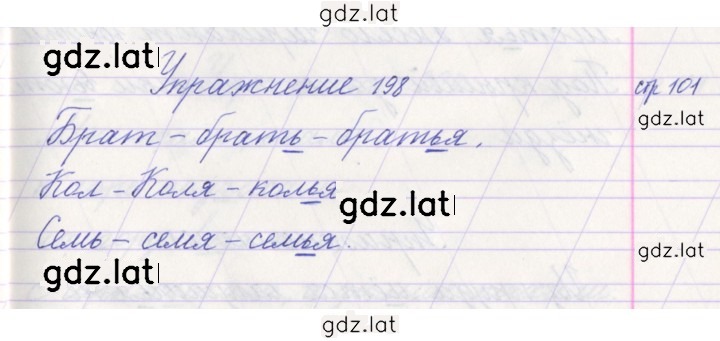 gdz.lat
gdz.lat
Упражнение 198 стр 101
gdz.lat
Брат - брать - братья.
Кол - Коля - колья
gdz.lat
Семь - семя - семья.
gdz.lat
gdz.lat
gdz.lat